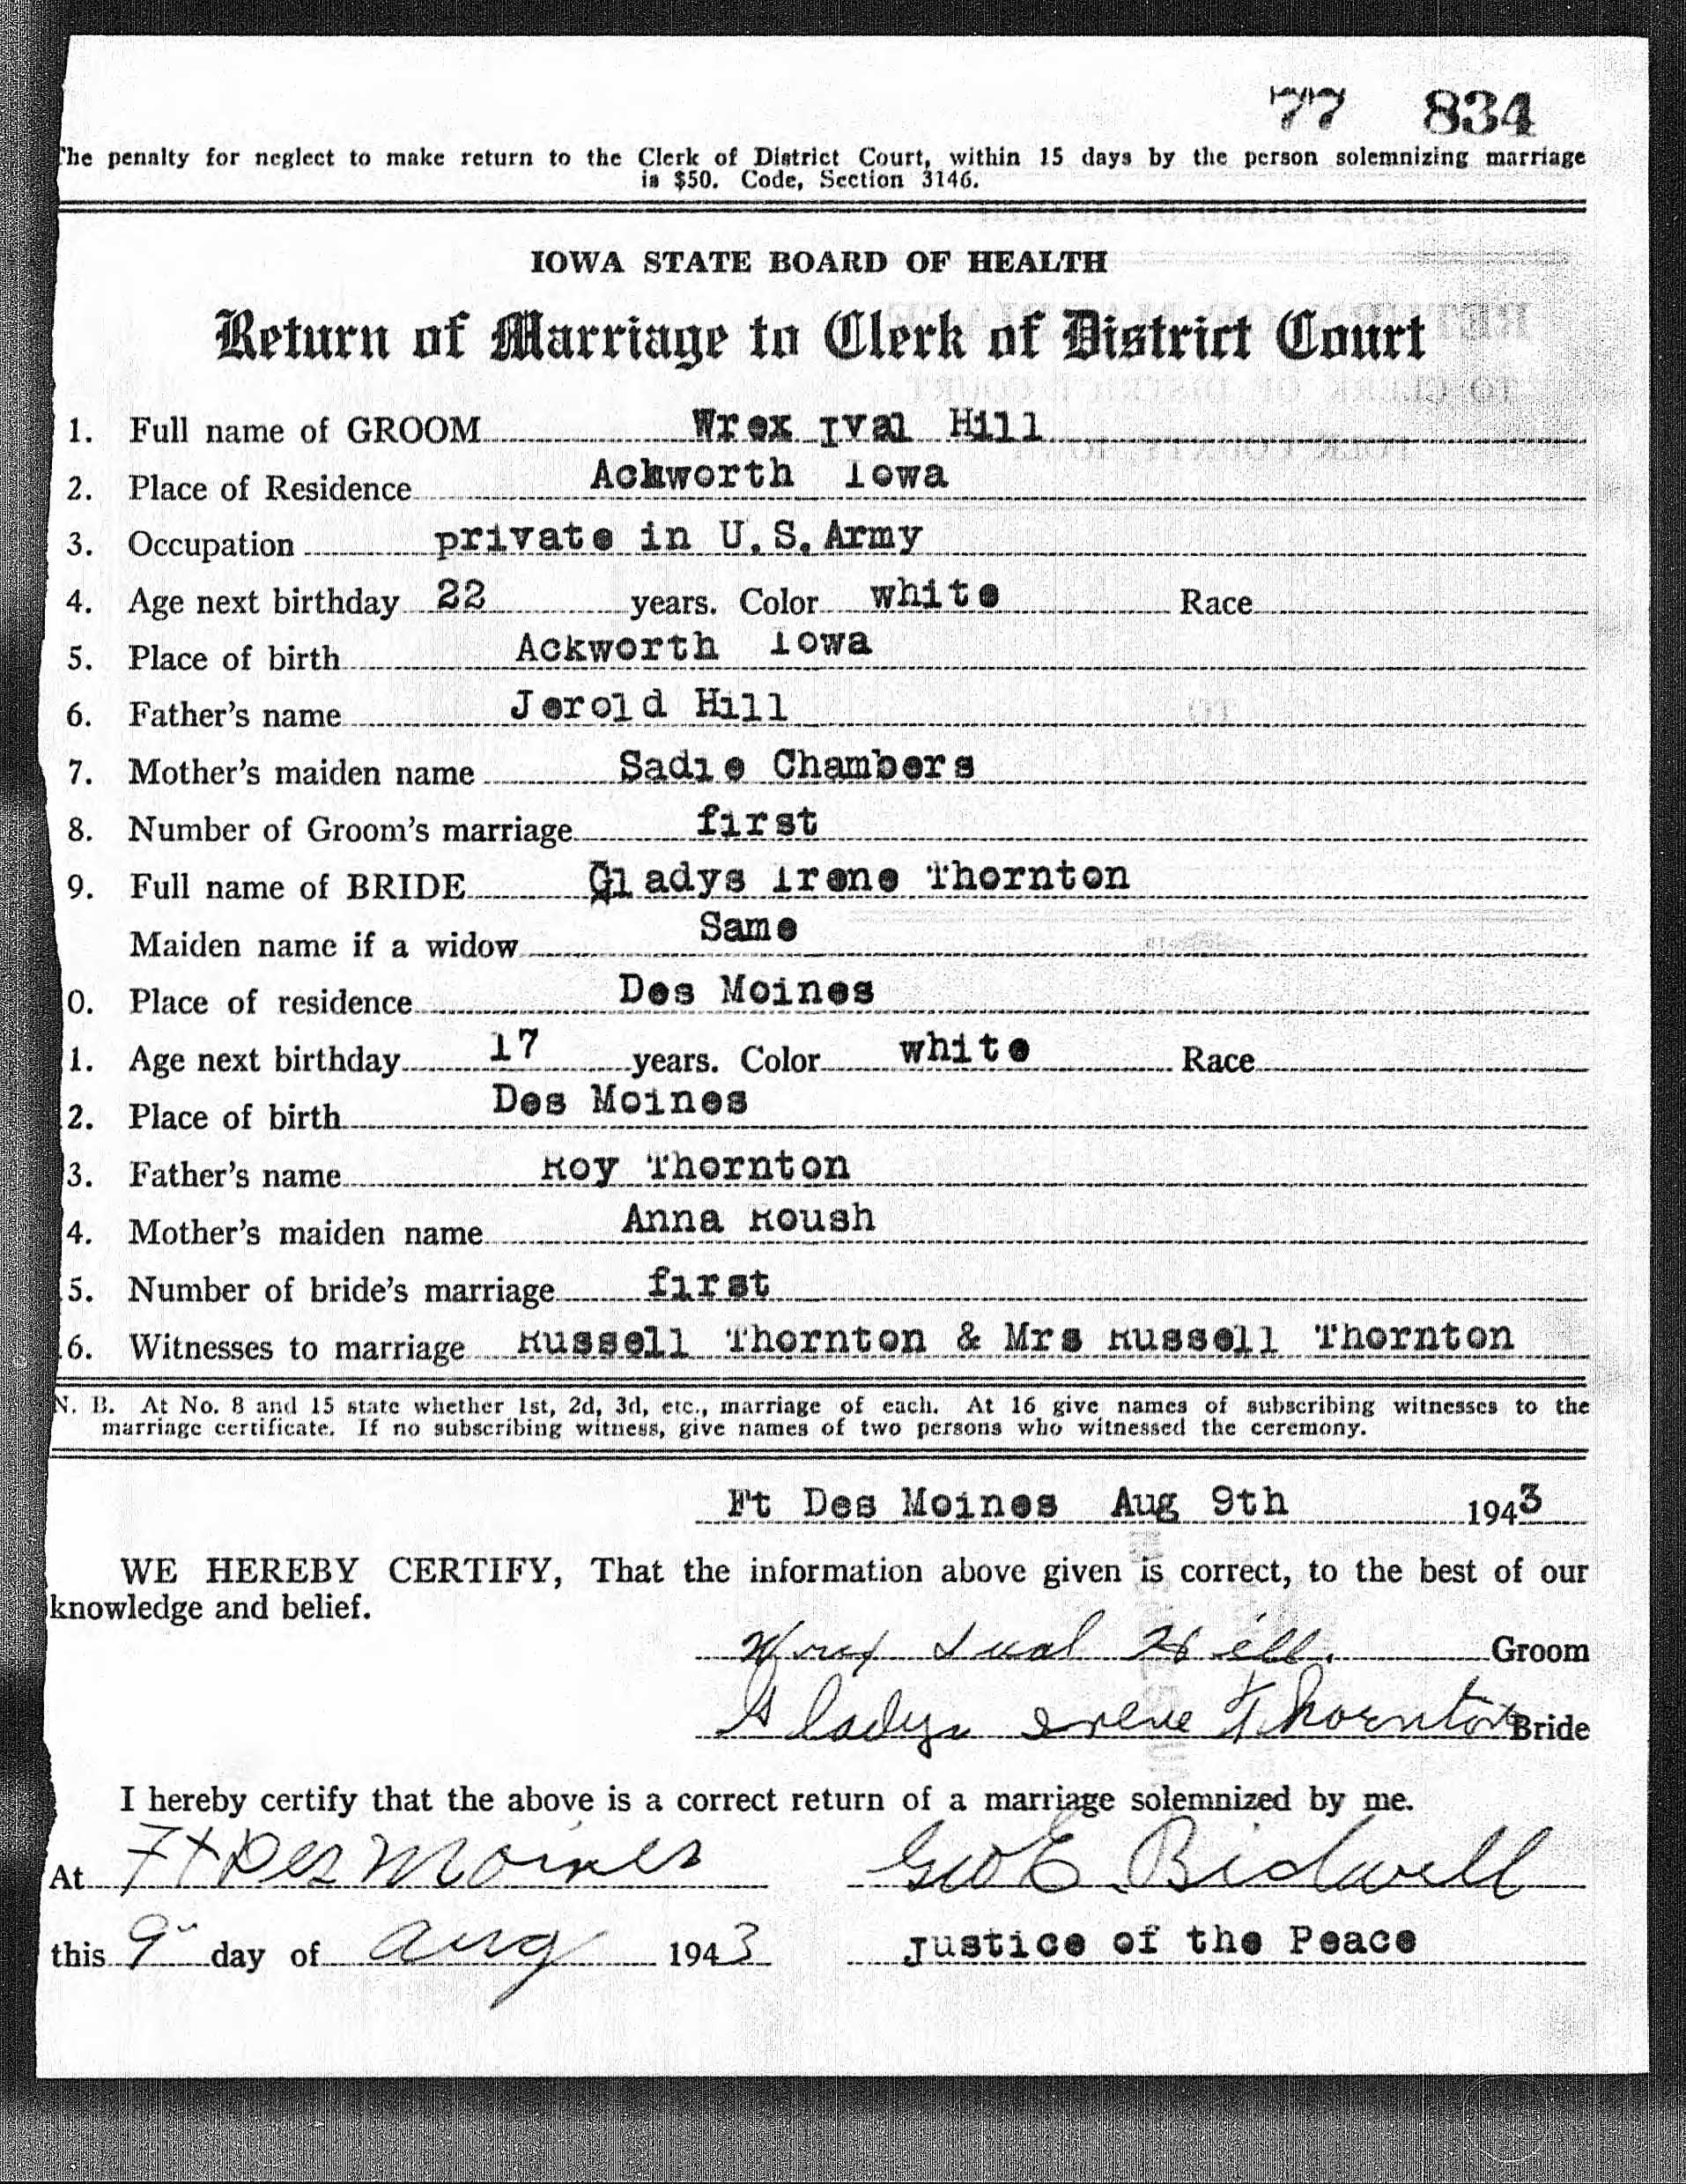 77 834
The penalty for neglect to make return to the Clerk of District Court, within 15 days by the person solemnizing marriage
is $50. Code, Section 3146.
IOWA STATE BOARD OF HEALTH
Return of Marriage to Clerk of District Court
1. Full name of GROOM Wrex Ival Hill
2. Place of Residence Ackworth Iowa
3. Occupation private in U.S.Army
4. Age next birthday 22 years. Color white Race
5. Place of birth Ackworth Iowa
6. Father's name Jerold Hill
7. Mother's maiden name Sadie Chambers
8. Number of Groom's marriage first
9. Full name of BRIDE Gladys Irene Thornton
Maiden name if a widow Same
0. Place of residence Des Moines
1. Age next birthday 17 years. Color white Race
2. Place of birth Des Moines
3. Father's name Roy Thornton
4. Mother's maiden name Anna Roush
5. Number of bride's marriage first
6. Witnesses to marriage Russell Thornton & Mrs Russell Thornton
N. B. At No. 8 and 15 state whether 1st, 2d, 3d, etc., marriage of each. At 16 give names of subscribing witnesses to the
marriage certificate. If no subscribing witness, give names of two persons who witnessed the ceremony.
Ft Des Moines Aug 9th 1943
WE HEREBY CERTIFY, That the information above given is correct, to the best of our
knowledge and belief.
Wrex Ival Hill. Groom
Gladys Irene Thornton Bride
I hereby certify that the above is a correct return of a marriage solemnized by me.
At Ft Des Moines Geo E. Bidwell
this 9" day of Aug 1943 Justice of the Peace